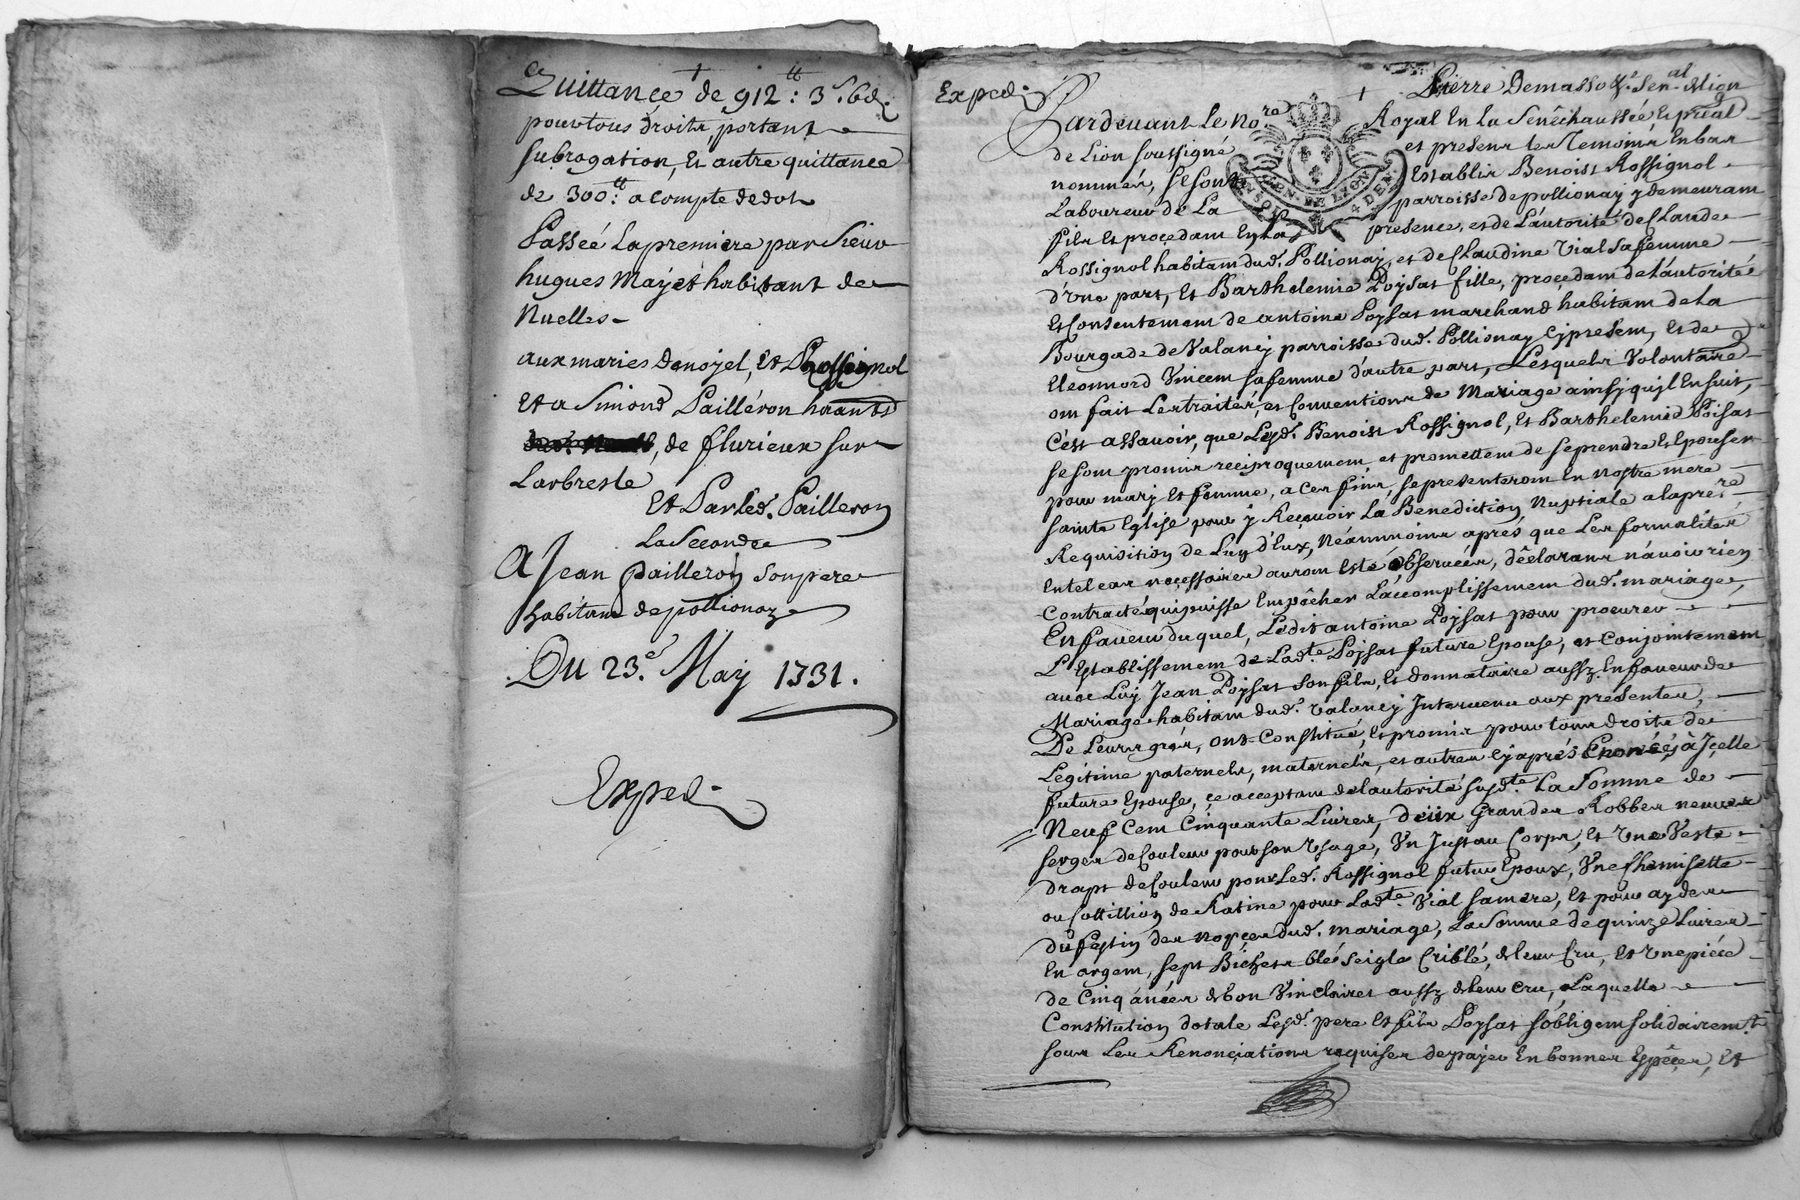 Quittance de 912tt: 3s. 6d.
pour tous droits portant
subrogation, Et autre quittance
de 300tt. a compte de dot
Passéé La premiere par Sieur
hugues Mayet habitant de
Nuelles
aux maries Denojel, Et Rossignol
Et a Simond Pailléron
de fflurieux sur
Larbresle
Et Par Led. Pailleron
La Seconde
A Jean pailleron son pere
habitant de pollionay
Du 23e. May 1731.
Exped.
Exped.
Pierre Demasso Sen.al de Lion
Pardevant Le No.re Royal En La Senêchaussée Et pńal
de Lion soussigné et presens les Temoins En bas
nommés, se sont Establis Benoist Rossignol
Laboureur de La parroisse de pollionay y demeurant
fils Et proçedant En La presence, et de L'autorité de Claude
Rossignol habitant dud. Pollionay, et de Claudine Vial sa femme
d'Une part, Et Barthelemie Poysat fille, proçedant de L'autorité
Et Consentement de antoine Poysat marchand habitant de La
Bourgade de Valancy parroisse dud. Pollionay Cy present, Et de
Eleonnord Vincent sa femme d'autre part, Lesquels Volontaire
ont fait Les traités, et Conventions de Mariage ainsy qu'jl Ensuit,
C'est assavoir, que Lesd. Benoist Rossignol, Et Barthelemie Poisat
se sont promis reçiproquement et promettent de se prendre Et Epouser
pour mary Et femme, a Ces fins, se presenteront En nostre mere
sainte Eglise pour y Reçevoir La Benediction Nuptiale a la pre.re
Requisition de L'un d'Eux, Néanmoins aprés que Les formalités
En tel cas neçessaires auront Esté observées, déclarans n'avoir rien
Contracté qui puisse Empâcher L'accomplissement dud. mariage,
En faveur duquel, Ledit antoine Poysat pour procurer
L'Establissement de Lad.te Poysat future Epouse, et Conjointement
avec Luy Jean Poysat son fils, Et donnataire aussy En faveur de
Mariage habitant dud. Valancy Intervenu aux presentes,
De Leurs grés, ont Constitué, Et promis pour tous droits de
Legitime paternels, maternels, et autres Cy aprés Enoncés, à Jcelle
future Epouse, ce acceptant de L'autorité susd.te La Somme de
Neuf Cent Cinquante Livres, deux Grandes Robbes neuves
serges de Couleur pour son Usage, Un Justau Corps, Et Une Veste
drapt de Couleur pour Led. Rossignol futur Epoux, Une Chemisette
ou Cottillion de Ratine pour Lad.te Vial sa mere, Et pour ayder
du festin des noçes dud. mariage, La Somme de quinze Livres
En argent, sept Bichets blé seigle Criblé, de Leur Cru, Et Une piéce
de Cinq ânées de bon Vin Clairet aussy de Leur Cru, Laquelle
Constitution dotale Lesd. pere Et fils Poysat s'obligent solidairemt.
sous Les Renonçiations requises de payer En bonnes Espêces, Et